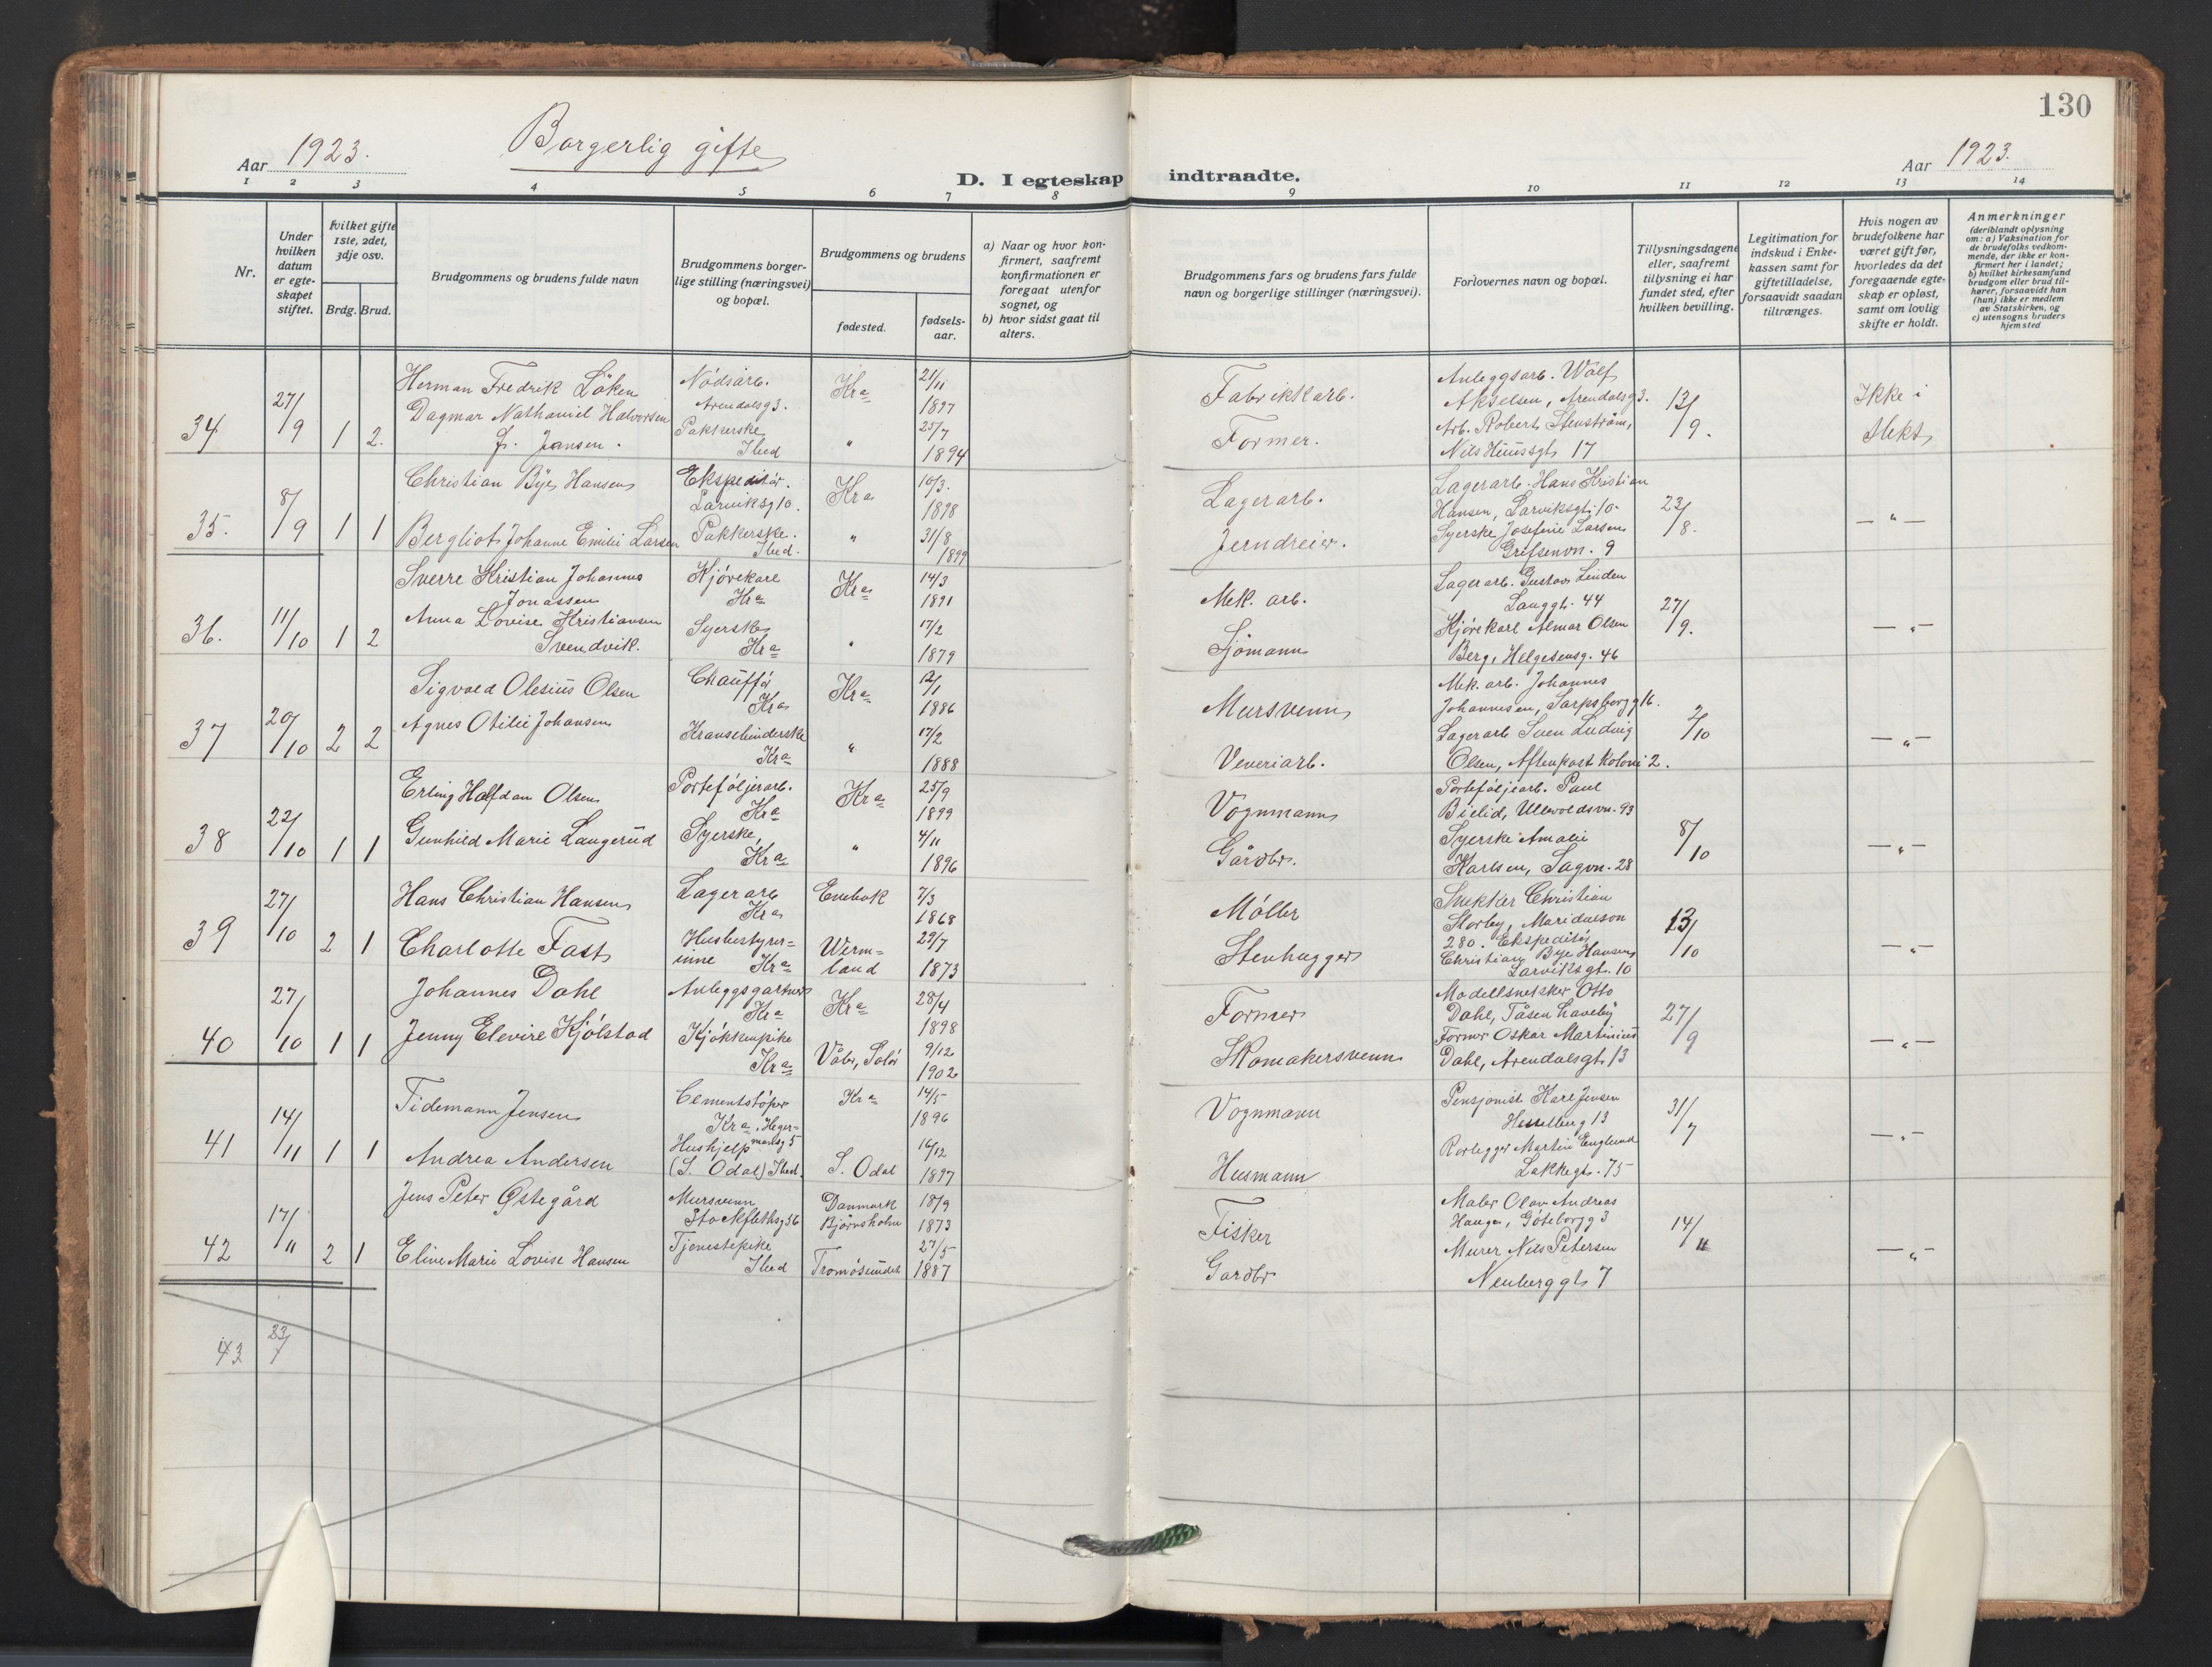 130
Aar 1923.
Borgerlig gifte
D. I egteskap indtraadte.
Aar 1923.
1 2 3 4 5 6 7 8 9 10 11 12 13 14
Nr.
Under hvilken datum er egteskapet stiftet.
hvilket gifte 1ste, 2det, 3dje osv.
Brdg. Brud.
Brudgommens og brudens fulde navn
Brudgommens borgerlige stilling (næringsvei) og bopæl.
Brudgommens og brudens
fødested.
fødselsaar.
a) Naar og hvor konfirmert, saafremt konfirmationen er foregaat utenfor sognet, og
b) hvor sidst gaat til alters.
Brudgommens fars og brudens fars fulde navn og borgerlige stillinger (næringsvei).
Forlovernes navn og bopæl.
Tillysningsdagene eller, saafremt tillysning ei har fundet sted, efter hvilken bevilling.
Legitimation for indskud i Enkekassen samt for giftetilladelse, forsaavidt saadan tiltrænges.
Hvis nogen av brudefolkene har været gift før, hvorledes da det foregaaende egteskap er opløst, samt om lovlig skifte er holdt.
Anmerkninger
(deriblandt oplysning om: a) Vaksination for de brudefolks vedkommende, der ikke er konfirmert her i landet; b) hvilket kirkesamfund brudgom eller brud tilhører, forsaavidt han (hun) ikke er medlem av Statskirken, og c) utensogns bruders hjemsted
34 27/9 1 2.
Herman Fredrik Löken
Dagmar Nathaniel Halvorsen
f. Jansen.
Nödsarb.
Arendalsg 3.
Pakkerske
Ibed
Kra
"
21/11 1897
25/7 1894
Fabrikkarb.
Former.
Anleggsarb. Wolf
Akselsen, Arendalsg 3.
Arb. Robert Stenström,
Nils Huusgt 17
13/9.
Ikke i
slekt
35. 8/9 1 1
Christian Bye Hansen
Bergliot Johanne Emilie Larsen
Ekspeditör.
Larviksg 10.
Pakkerske.
Ibed.
Kra
"
10/3. 1898
31/8 1899
Lagerarb.
Jerndreier.
Lagerarb. Hans Kristian
Hansen, Larviksgt. 10.
Syerske Josefine Larsen
Grefsenvn. 9
23/8.
— " —
36. 11/10 1 2
Sverre Kristian Johannes
Jonassen
Anna Lovise Kristiansen
Svendvik.
Kjörekarl
Kra
Syerske
Kra
Kra
"
14/3 1891
17/2 1879
Mek. arb.
Sjömann
Lagerarb. Gustav Linden
Langgt. 44
Kjörekarl Almar Olsen
Berg, Helgesensg. 46
27/9.
— " —
37 20/10 2 2
Sigvald Olesius Olsen
Agnes Otilie Johansen
Chaufför
Kra
Kransebinderske
Kra
Kra
"
12/1 1886
17/2 1888
Mursvenn
Veveriarb.
Mek. arb. Johannes
Johannesen, Sarpsborgg 16.
Lagerarb Sven Ludvig
Olsen, Aftenpost Koloni 2.
2/10
— " —
38 22/10 1 1
Erling Halfdan Olsen
Gunhild Marie Langerud
Porteföljearb.
Kra
Syerske,
Kra
Kra
"
25/9 1899
4/11 1896
Vognmann
Gårdbr.
Porteföljearb. Paul
Bielid, Ullevoldsvn. 93
Syerske Amalie
Karlsen, Sagvn. 28
8/10
— " —
39 27/10 2 1
Hans Christian Hansen
Charlotte Fast
Lagerarb
Kra
Husbestyrer=
inne Kra
Enebak
Werm=
land
7/3 1868
29/7 1873
Möller
Stenhugger
Snekker Christian
Storby, Maridalsvn
280. Ekspeditör
Christian Bye Hansen
Larviksgt. 10
13/10
— " —
40 27/10 1 1
Johannes Dahl
Jenny Elevire Kjölstad
Anleggsgartner
Kra
Kjökkenpike
Kra
Kra
Våler, Solör
28/4 1898
9/12 1902
Former
Skomakersvenn
Modellsnekker Otto
Dahl, Tåsen haveby
Former Oskar Martinius
Dahl, Arendalsgt 13
27/9
— " —
41 14/11 1 1
Tidemann Jensen
Andrea Andersen
Cementstöper
Kra, Heger=
manlsg 5
Hushjelp
(S. Odal) Ibed.
Kra
S. Odal
14/5 1896
16/12 1897
Vognmann
Husmann
Pensjonist Karl Jensen
Hesselberg 13
Rørlegger Martin Englund
Lakkegt. 75
31/7
— " —
42 17/11 2 1
Jens Peter Østegård
Eline Marie Lovise Hansen
Mursvenn
Stockflethsg 36
Tjenestepike
Ibed
Danmark
Bjørnsholm
Tromösundet
18/9 1873
27/5 1887
Fisker
Gardbr
Maler Olav Andreas
Hauge, Göteborgg 3
Murer Nils Petersen
Neuberggt 7
14/11
— " —
43 23/7